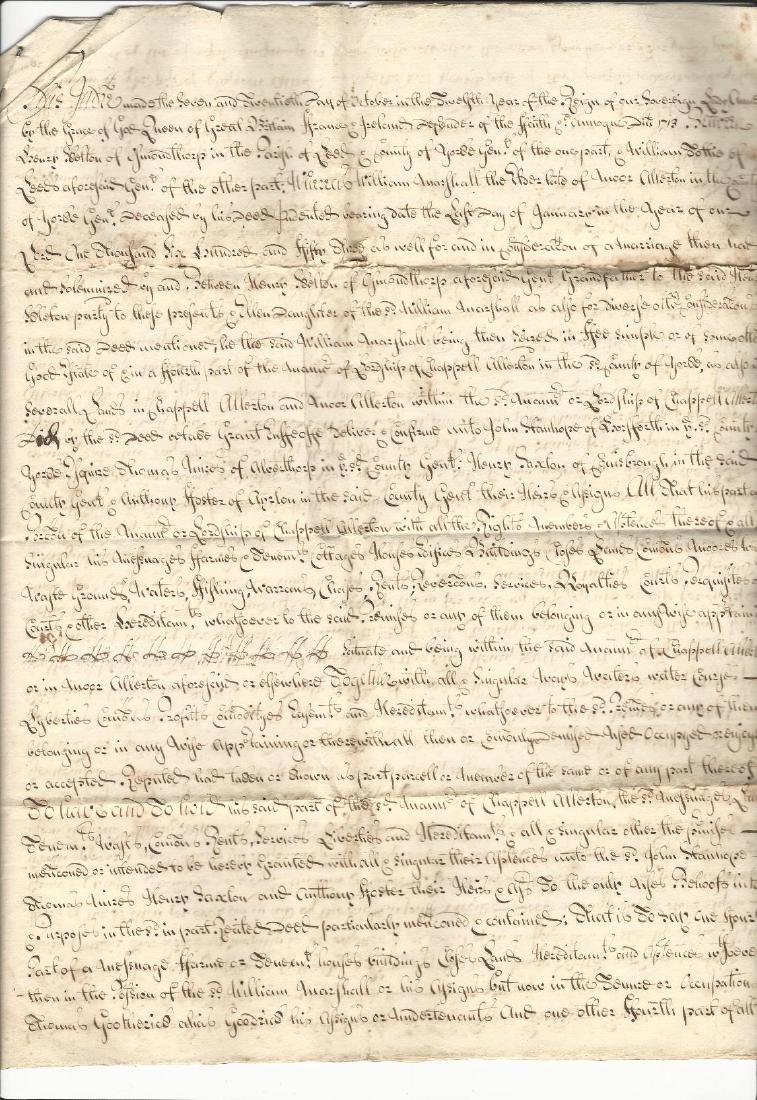 This Indre made the Seven and Twentieth Day of October in the Twelfth Year of the Reign of our Sovereign Lady Anne
by the Grace of God Queen of Great Brittain ffrance & Ireland Defender of the ffaith &c Annoque Dni 1713 Between
Henry Weston of in the Parish of Leeds & County of Yorke Gent of the one part, & William Dottie of
Leeds aforesaid Gent of the other part, Whereas William Marshall the Elder late of Moor Allerton in the County
of Yorke Gent Deceased by his Deed Indented bearing date the Last Day of January in the Year of our
Lord One Thousand Six Hundred and ffifty Three as well for and in Consideracon of a marriage then had
and Solemnized by and Between Henry of aforesaid Gent Grandfather to the said Henry
party to these presents & Ellen Daughter of the sd William Marshall as also for diverse other Consideracons
in the said Deed mentioned, he the said William Marshall being then Seized in ffee Simple or of some other
Good Estate of & in a ffourth part of the Mannor or Lordship of Chappell Allerton in the sd County of Yorke, as also
Severall Lands in Chappell Allerton and Moor Allerton within the sd Mannor or Lordship of Chappell Allerton
Did by the sd Deed Grant Enffeoffe Deliver & Confirme unto John Stanhope of Horsforth in ye sd County
Yorke Esquire Thomas of Alverthorp in ye sd County Gent Henry Saxton of in the said
County Gent & Anthony ffoster of in the said County Gent their Heirs & Assigns All That his part
Porcon of the Mannor or Lordship of Chappell Allerton with all the Rights Members & thereof & all
Singular his Messuages ffarmes & Tenemts Cottages Houses Edifices Buildings Closes Lands Comons Moores
Waste Grounds, Waters, ffishing, Warrens, Chases, Rents, Revercons, Services, Royalties Courts Perquisites of
Courts & other Hereditamts whatsoever to the said Premises or any of them belonging or in any wise appertain
Scituate and being within the said Mannor of Chappell Aller
or in Moor Allerton aforesaid or elsewhere Together with all & Singular Ways, Waters Water Course
Lyberties Comons Profits Comodityes Easemts and Hereditamts whatsoever to the sd Premes or any of them
belonging or in any Wise Appertaining or therewithall then or Comonly Demised Used Occupyed or enjoy
or accepted Reputed had taken or known as part parcell or Member of the same or of any part thereof
To have and To hold his said part of the sd Mannor of Chappell Allerton, the sd Messuages Land
Tenemts Wasts, Comons Rents, Services Liberties and Hereditamts & all & Singular other the Premises
mentioned or intended to be hereby Granted with all & Singular their unto the sd John Stanhope
Thomas Henry Saxton, and Anthony ffoster their Heirs & To the only Uses Behoofs
& Purposes in the sd in part Recited Deed particularly mentioned & contained; That is To say One ffourth
Part of a Messuage ffarme or Tenemt houses buildings Closes Lands Hereditamts and
then in the of the sd William Marshall or his Assigns but now in the Tenure or Occupation
Thomas Gootherick alias Goodrick his Assigns or Undertenants And one other ffourth part of all